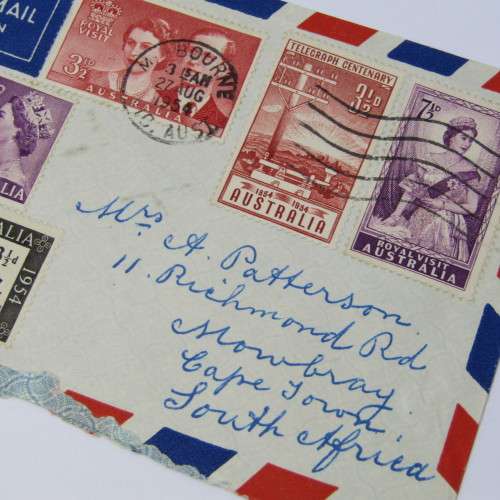 MAIL
ROYAL
VISIT
3½D
AUSTRALIA
MELBOURNE
27 AUG
1954
VIC. AUST
TELEGRAPH CENTENARY
3½D
1854 1954
AUSTRALIA
7½D
ROYAL VISIT
AUSTRALIA
RALIA
ALIA
3½d
1954
Mrs A. Patterson.
11. Richmond Rd
Mowbray.
Cape Town,
South Africa